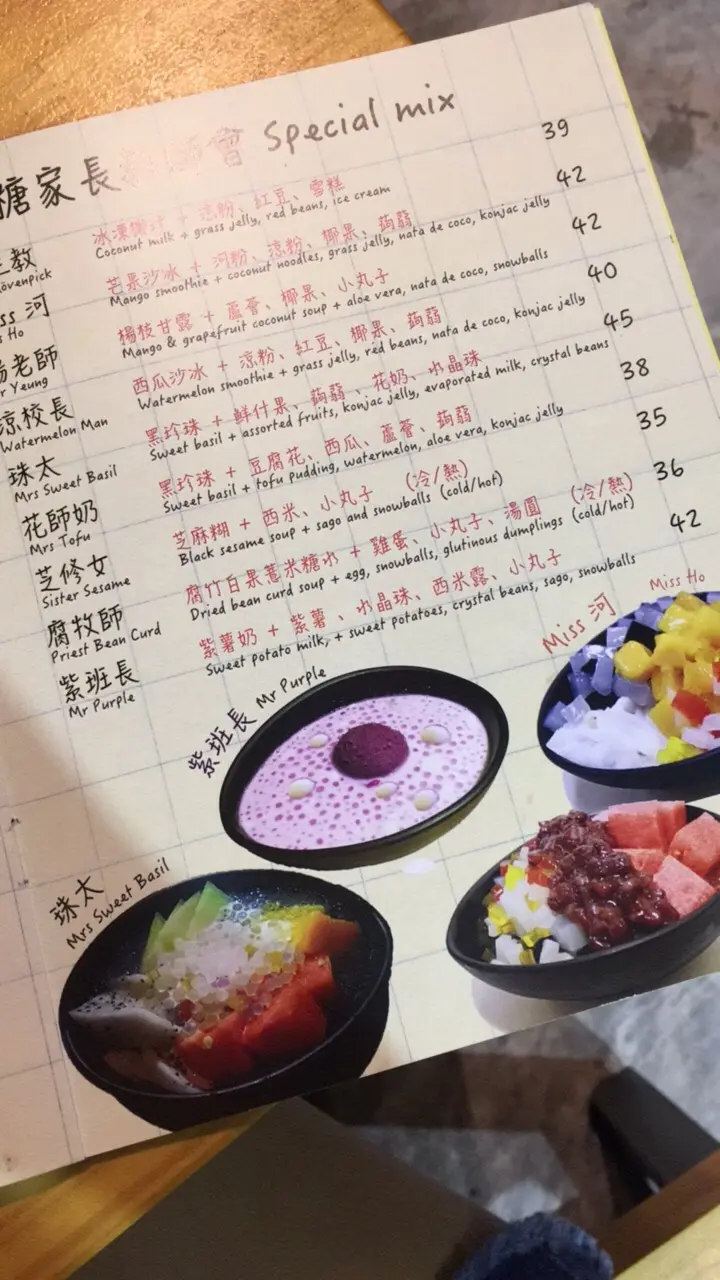 糖家長 會 Special mix
39
主教 冰凍椰汁 + 涼粉、紅豆、雪糕
Mövenpick Coconut milk + grass jelly, red beans, ice cream
42
Miss 河 芒果沙冰 + 河粉、涼粉、椰果、蒟蒻
Miss Ho Mango smoothie + coconut noodles, grass jelly, nata de coco, konjac jelly
42
楊老師 楊枝甘露 + 蘆薈、椰果、小丸子
Mr Yeung Mango & grapefruit coconut soup + aloe vera, nata de coco, snowballs
40
涼校長 西瓜沙冰 + 涼粉、紅豆、椰果、蒟蒻
Watermelon Man Watermelon smoothie + grass jelly, red beans, nata de coco, konjac jelly
45
珠太 黑珍珠 + 鮮什果、蒟蒻、花奶、水晶珠
Mrs Sweet Basil Sweet basil + assorted fruits, konjac jelly, evaporated milk, crystal beans
38
花師奶 黑珍珠 + 豆腐花、西瓜、蘆薈、蒟蒻
Mrs Tofu Sweet basil + tofu pudding, watermelon, aloe vera, konjac jelly
35
芝修女 芝麻糊 + 西米、小丸子 (冷/熱)
Sister Sesame Black sesame soup + sago and snowballs (cold/hot)
36
腐牧師 腐竹白果薏米糖水 + 雞蛋、小丸子、湯圓 (冷/熱)
Priest Bean Curd Dried bean curd soup + egg, snowballs, glutinous dumplings (cold/hot)
42
紫班長 紫薯奶 + 紫薯、水晶珠、西米露、小丸子
Mr Purple Sweet potato milk, + sweet potatoes, crystal beans, sago, snowballs
Miss 河 Miss Ho
紫班長 Mr Purple
珠太
Mrs Sweet Basil